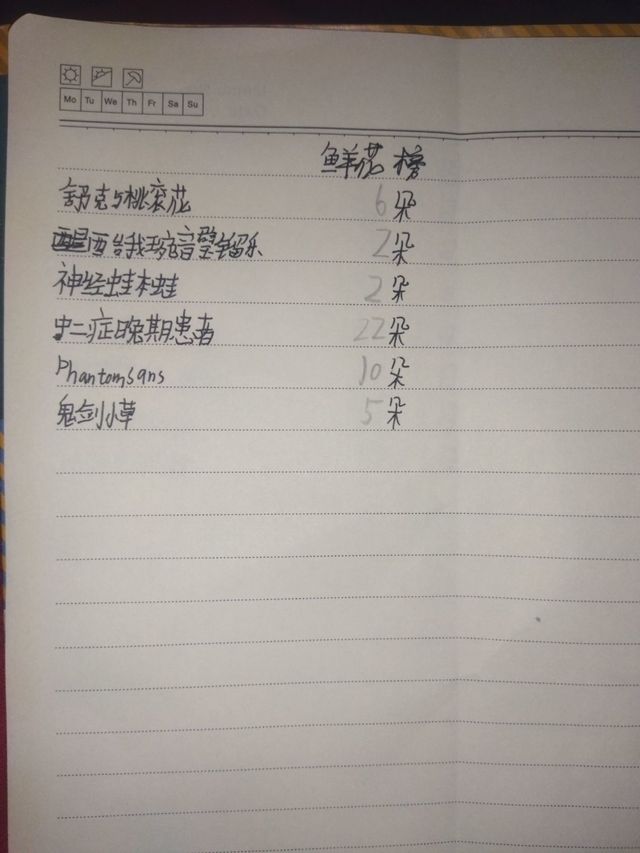 Mo Tu We Th Fr Sa Su
鲜花榜
舒克与桃滚花 6朵
西给我琬音壁留乐 2朵
神经蛙木蛙 2朵
中二症晚期患者 22朵
Phantomsans 10朵
鬼剑小草 5朵